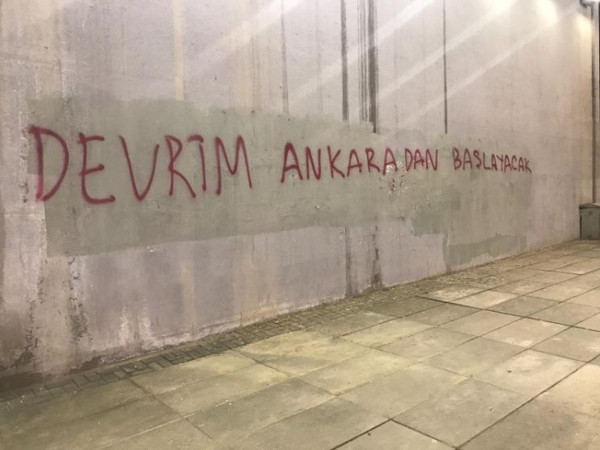 DEVRİM ANKARADAN BAŞLAYACAK